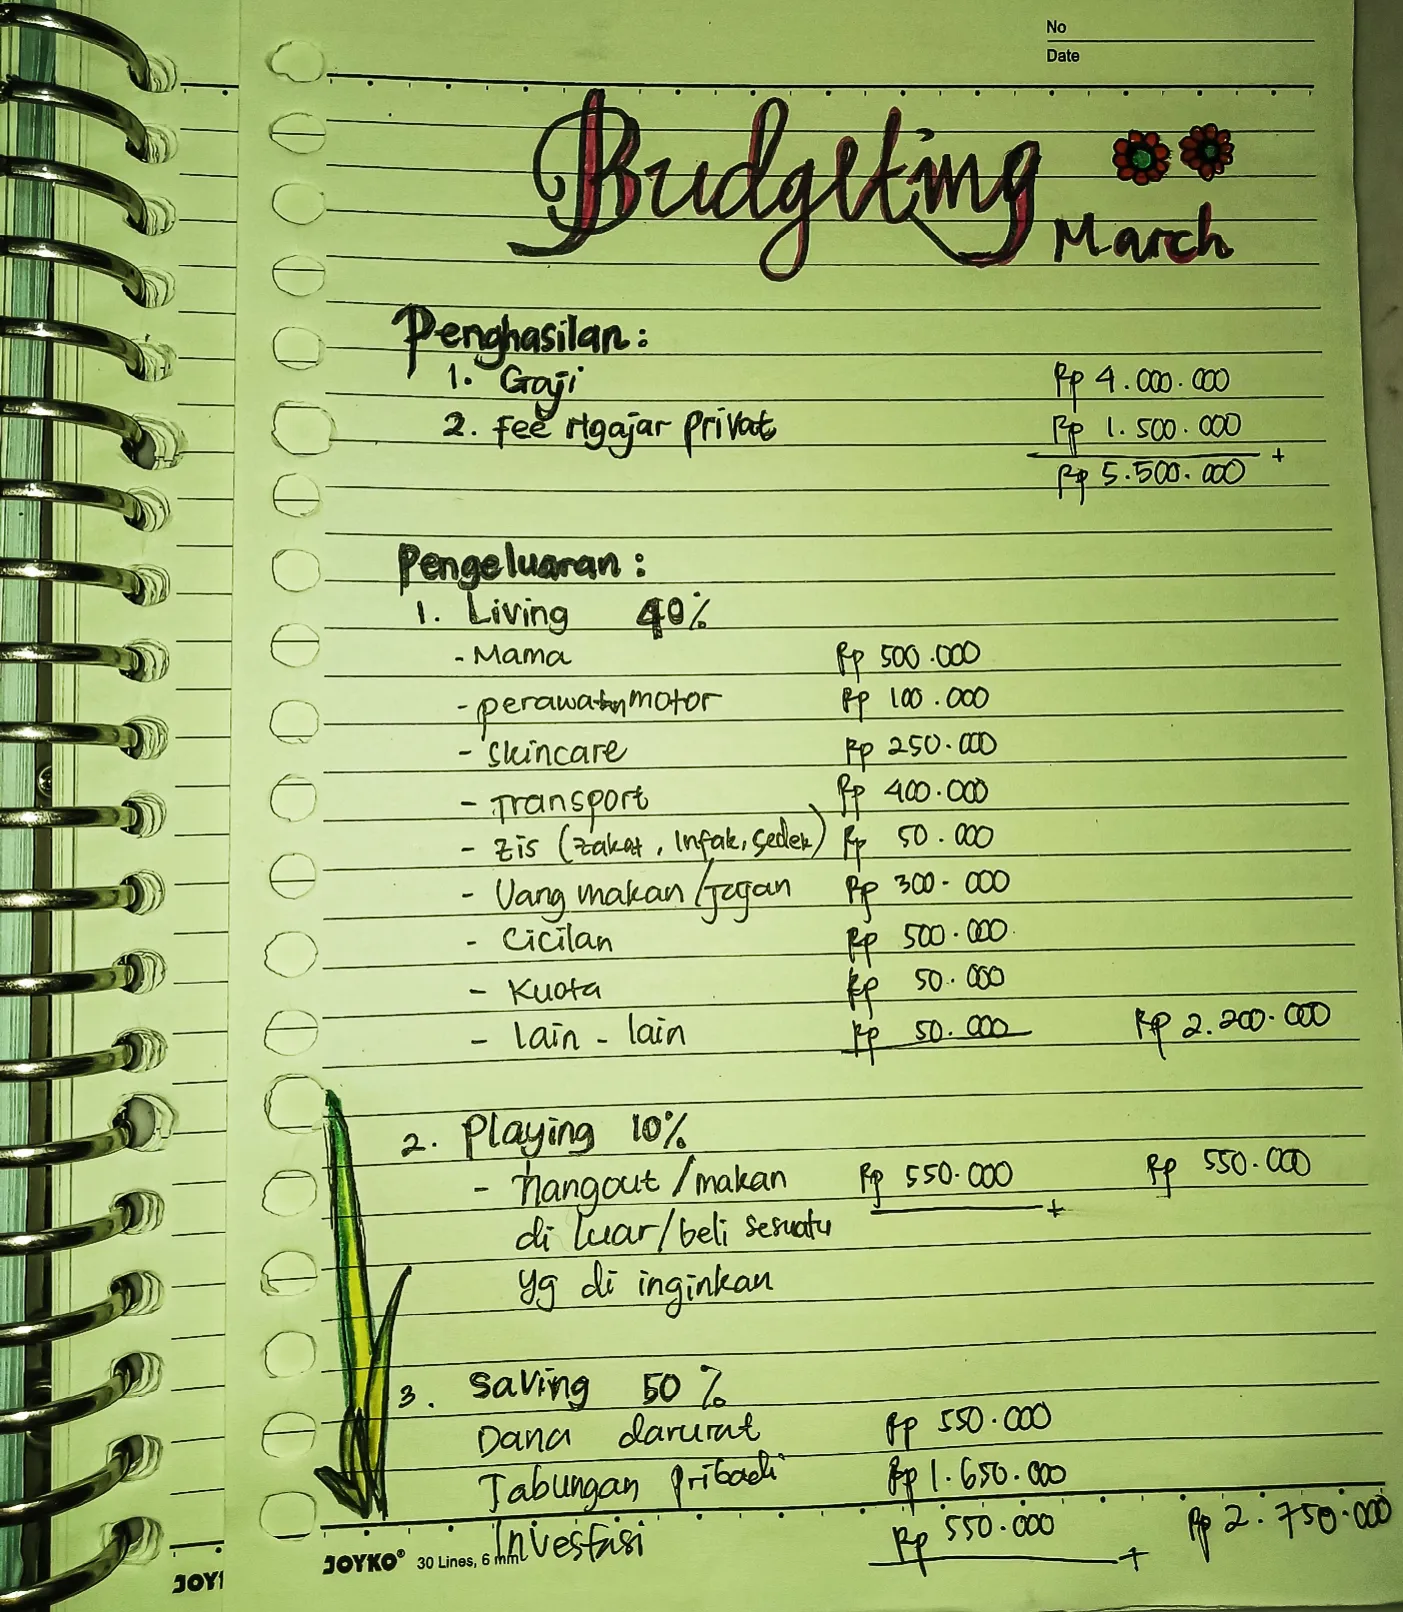 No
Date
Budgeting
March
Penghasilan :
1. Gaji Rp 4.000.000
2. Fee Ngajar Privat Rp 1.500.000
+
Rp 5.500.000
Pengeluaran :
1. Living 40%
- Mama Rp 500.000
- perawatan motor Rp 100.000
- Skincare Rp 250.000
- Transport Rp 400.000
- Zis (Zakat, Infak, Sedek) Rp 50.000
- Uang makan / Jajan Rp 300.000
- Cicilan Rp 500.000
- Kuota Rp 50.000
- lain - lain Rp 50.000 Rp 2.200.000
2. Playing 10%
- hangout / makan Rp 550.000 Rp 550.000
+
di luar/beli sesuatu
yg di inginkan
3. Saving 50 %
Dana darurat Rp 550.000
Tabungan pribadi Rp 1.650.000
Investasi Rp 550.000 Rp 2.750.000
+
JOYKO® 30 Lines, 6 mm
JOY